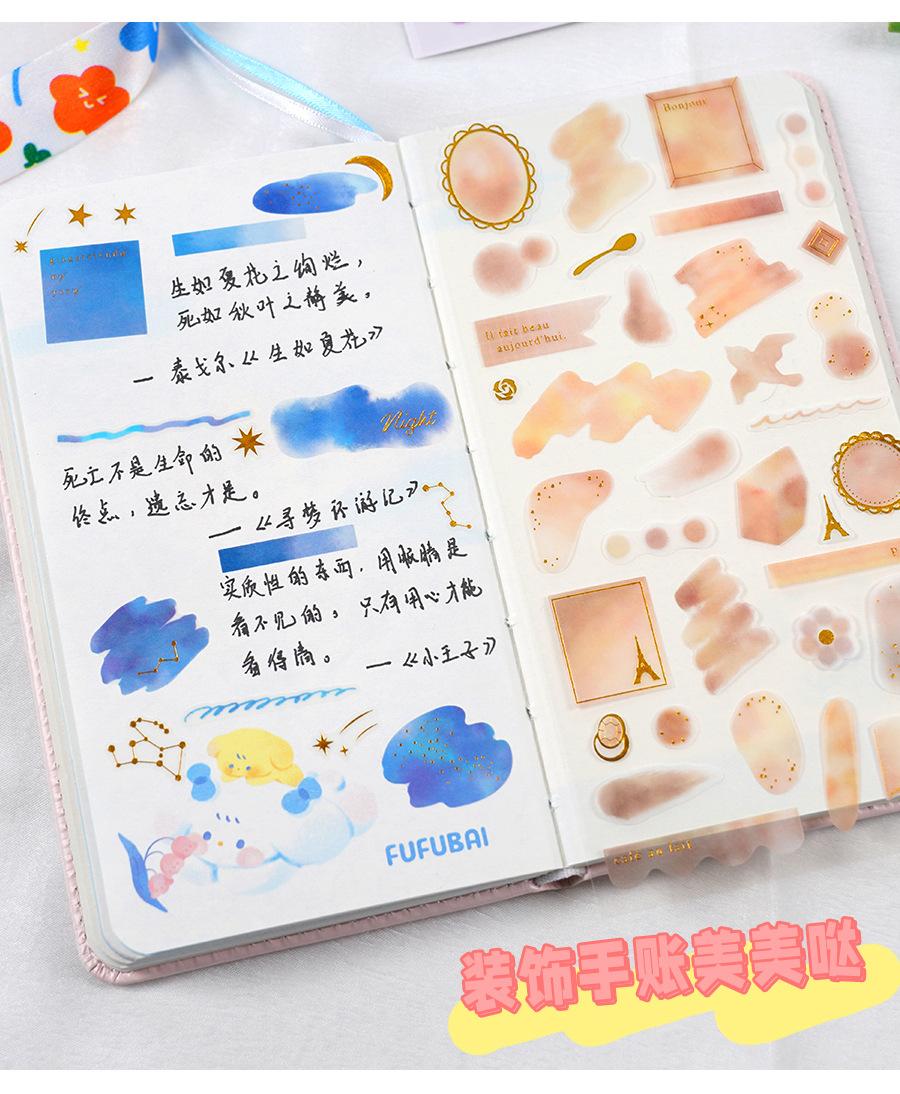 生如夏花之绚烂，
死如秋叶之静美。
— 泰戈尔《生如夏花》
Night
死亡不是生命的
终点，遗忘才是。
— 《寻梦环游记》
实质性的东西，用眼睛是
看不见的。只有用心才能
看得清。 — 《小王子》
FUFUBAI
Bonjour
Il fait beau
aujourd'hui.
café au lait
装饰手账美美哒